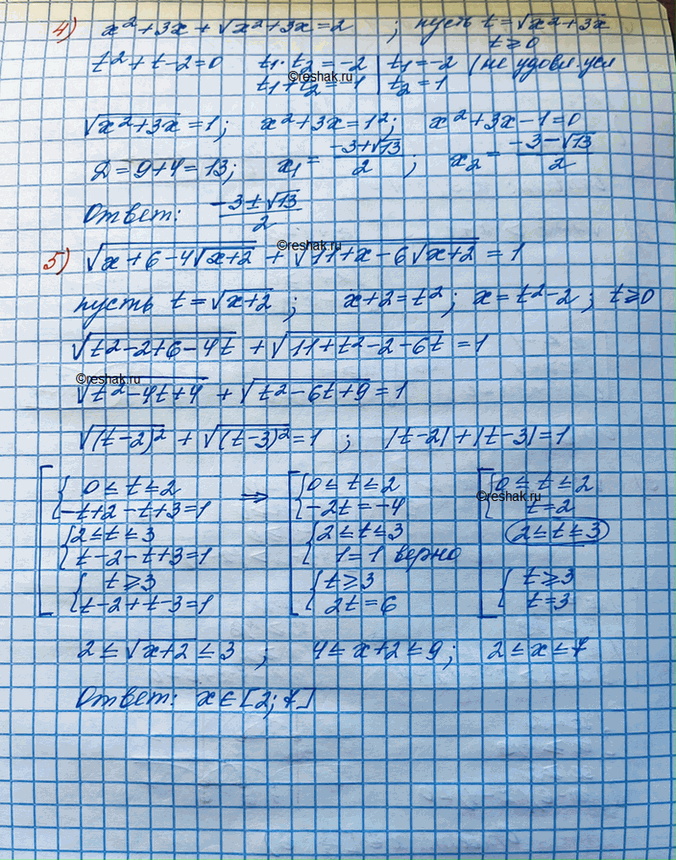 4) x²+3x+√x²+3x=2 ; пусть t=√x²+3x
t≥0
t²+t-2=0 t₁·t₂=-2 | t₁=-2 (не удовл.усл
©reshak.ru
t₁+t₂=-1 | t₂=1
√x²+3x=1; x²+3x=1²; x²+3x-1=0
D=9+4=13; x₁=(-3+√13)/2 ; x₂=(-3-√13)/2
Ответ: (-3±√13)/2
©reshak.ru
5) √x+6-4√x+2 + √11+x-6√x+2 =1
пусть t=√x+2 ; x+2=t²; x=t²-2; t≥0
√t²-2+6-4t + √11+t²-2-6t =1
©reshak.ru
√t²-4t+4 + √t²-6t+9=1
√(t-2)² + √(t-3)²=1 ; |t-2|+|t-3|=1
[ { 0≤t≤2 ⇒ [ { 0≤t≤2 [ { 0≤t≤2
©reshak.ru
-t+2-t+3=1 -2t=-4 t=2
{ 2≤t≤3 { 2≤t≤3 2≤t≤3
t-2-t+3=1 1=1 верно
{ t≥3 { t≥3 { t≥3
t-2+t-3=1 2t=6 t=3
2≤√x+2≤3 ; 4≤x+2≤9; 2≤x≤7
Ответ: x∈[2;7]